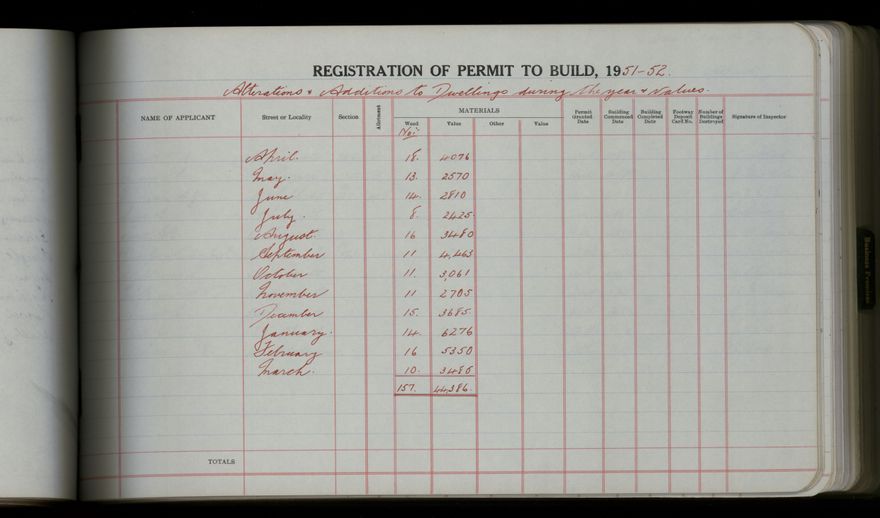 REGISTRATION OF PERMIT TO BUILD, 1951-52.
Alterations & Additions to Dwellings during the year & Values.
NAME OF APPLICANT Street or Locality Section Allotment MATERIALS Wood Value Other Value Permit Granted Date Building Commenced Date Building Completed Date Footway Deposit Card No. Number of Buildings Destroyed Signature of Inspector
No:
April. 18. 4076
May. 13. 2570
June 14. 2810
July. 8. 2425.
August. 16 3480
September 11 4,463
October 11. 3,061
November 11 2705
December 15. 3685.
January. 14. 6276
February 16 5350
March. 10. 3485
157. 44,386.
TOTALS